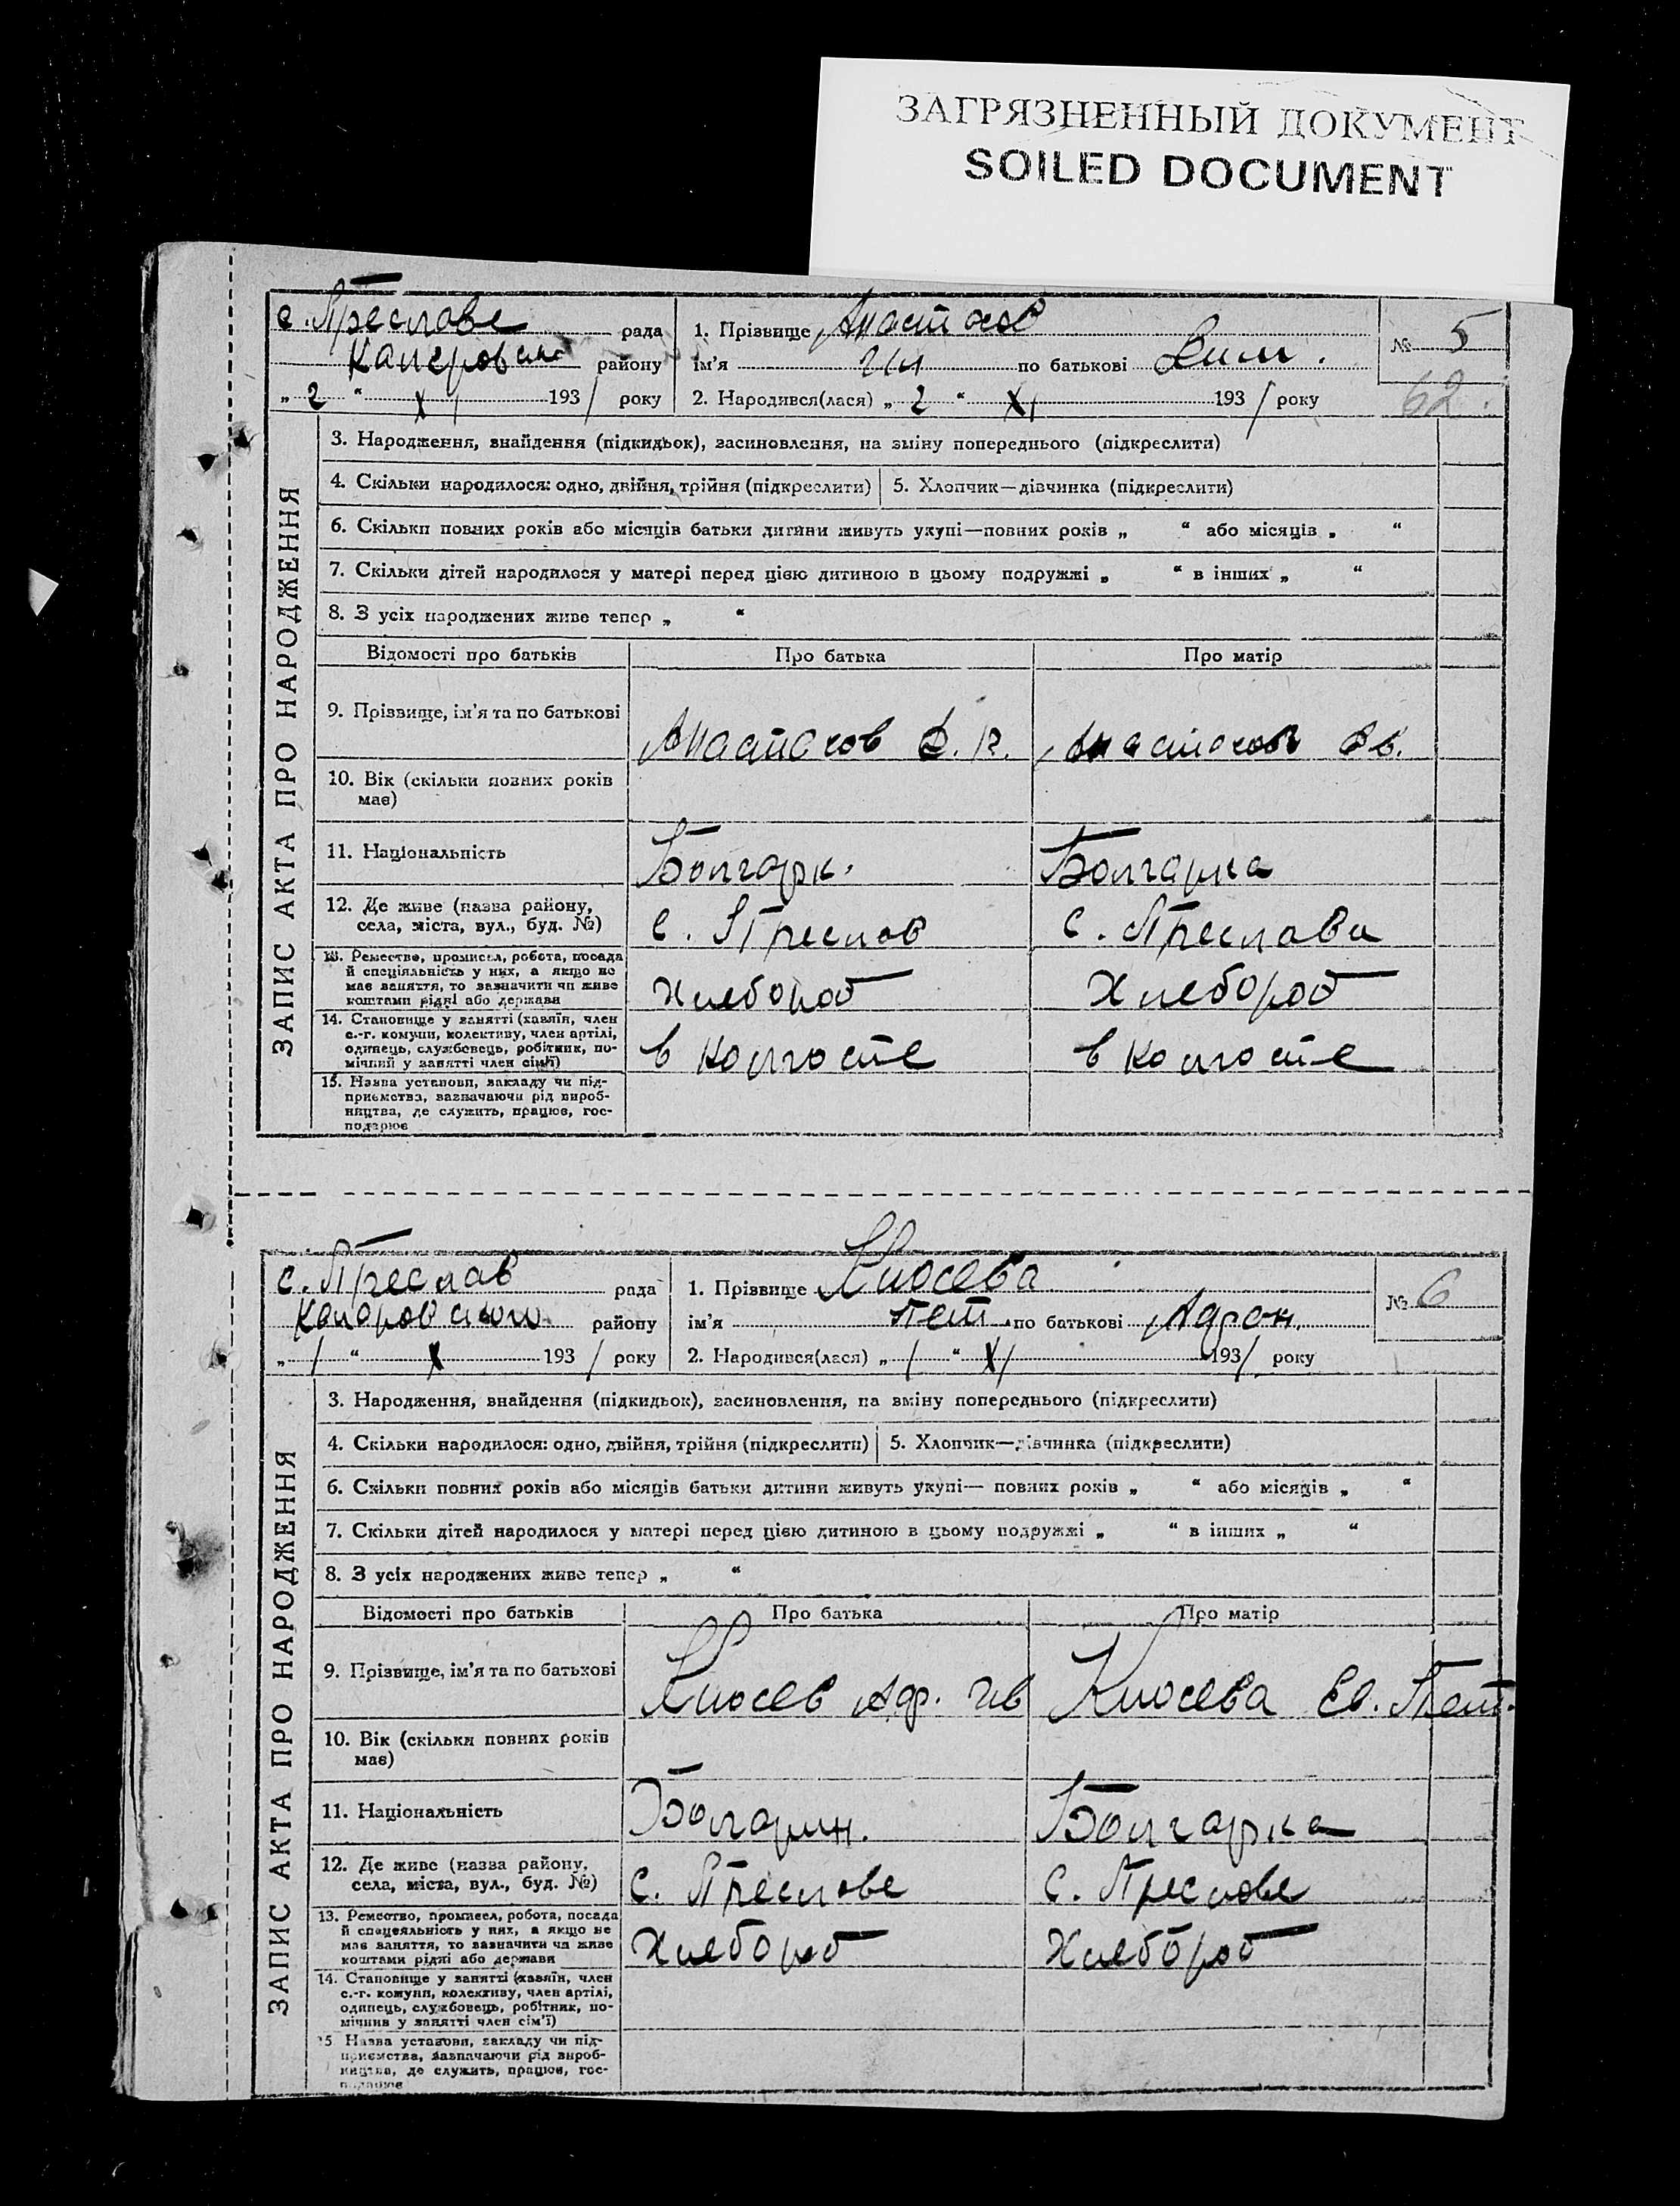 ЗАГРЯЗНЕННЫЙ ДОКУМЕНТ
SOILED DOCUMENT
с. Преславе рада
района
„ 2 “ XI 193 1 року
1. Прізвище Анастасов
ім'я по батькові Дим.
2. Народився(лася) „ 2 “ XI 193 1 року
№ 5
62.
ЗАПИС АКТА ПРО НАРОДЖЕННЯ
3. Народження, знайдення (підкидьок), засиновлення, на зміну попереднього (підкреслити)
4. Скільки народилося: одно, двійня, трійня (підкреслити) 5. Хлопчик—дівчинка (підкреслити)
6. Скільки повних років або місяців батьки дитини живуть укупі—повних років „ “ або місяців „ “
7. Скільки дітей народилося у матері перед цією дитиною в цьому подружжі „ “ в інших „ “
8. З усіх народжених живе тепер „ “
Відомості про батьків Про батька Про матір
9. Прізвище, ім'я та по батькові
Анастасов Д. Анастасов
10. Вік (скільки повних років
має)
11. Національність Болгарк. Болгарка
12. Де живе (назва району,
села, міста, вул., буд. №)
с. Преслов с. Преслава
13. Ремество, промисел, робота, посада
й спеціяльність у них, а якщо не
має заняття, то зазначити чи живе
коштами рідні або держави
Хлебороб Хлебороб
14. Становище у занятті (хазяїн, член
с.-г. комуни, колективу, член артілі,
одинець, службовець, робітник, по-
мічний у занятті член сім'ї)
в колгосте в колгосте
15. Назва установи, закладу чи під-
приємства, зазначаючи рід вироб-
ництва, де служить, працює, гос-
подарює
с. Преслав рада
району
„ 1 “ X 193 1 року
1. Прізвище Кносева
ім'я Пет. по батькові Адрон.
2. Народився(лася) „ 1 “ XI 193 1 року
№ 6
ЗАПИС АКТА ПРО НАРОДЖЕННЯ
3. Народження, знайдення (підкидьок), засиновлення, на зміну попереднього (підкреслити)
4. Скільки народилося: одно, двійня, трійня (підкреслити) 5. Хлопчик—дівчинка (підкреслити)
6. Скільки повних років або місяців батьки дитини живуть укупі— повних років „ “ або місяців „ “
7. Скільки дітей народилося у матері перед цією дитиною в цьому подружжі „ “ в інших „ “
8. З усіх народжених живе тепер „ “
Відомості про батьків Про батька Про матір
9. Прізвище, ім'я та по батькові
Кносев Адр. Ив Кносева Ев. Пет.
10. Вік (скільки повних років
має)
11. Національність Болгарин. Болгарка
12. Де живе (назва району,
села, міста, вул., буд. №)
с. Преславе с. Преславе
13. Ремество, промисел, робота, посада
й спецеяльність у них, а якщо не
має заняття, то зазначити чи живе
коштами рідні або держави
Хлебороб Хлебороб
14. Становище у занятті (хазяїн, член
с.-г. комуни, колективу, член артілі,
одинець, службовець, робітник, по-
мічнив у занятті член сім'ї)
15 Назва установи, закладу чи під-
приємства, зазначаючи рід вироб-
ництва, де служить, працює, гос-
подарює